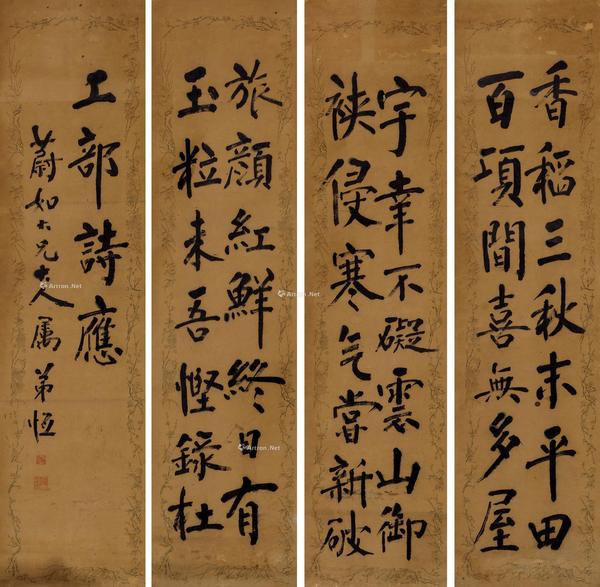 香稻三秋末平田
百頃間喜無多屋
宇幸不礙雲山御
裌侵寒气嘗新破
旅顏紅鮮終日有
玉粒未吾慳錄杜
工部詩應
蔚如大兄大人属弟恆
Artron.Net
Artron.Net
Artron.Net